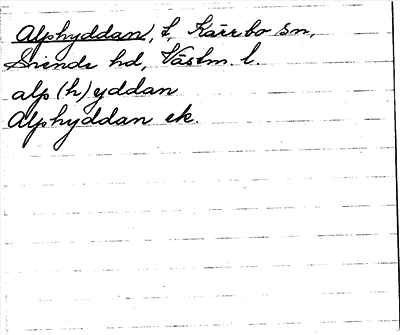 Alphyddan, t, Kärrbo sn,
Siende hd, Västm. l.
alp(h)yddan
Alphyddan ek.